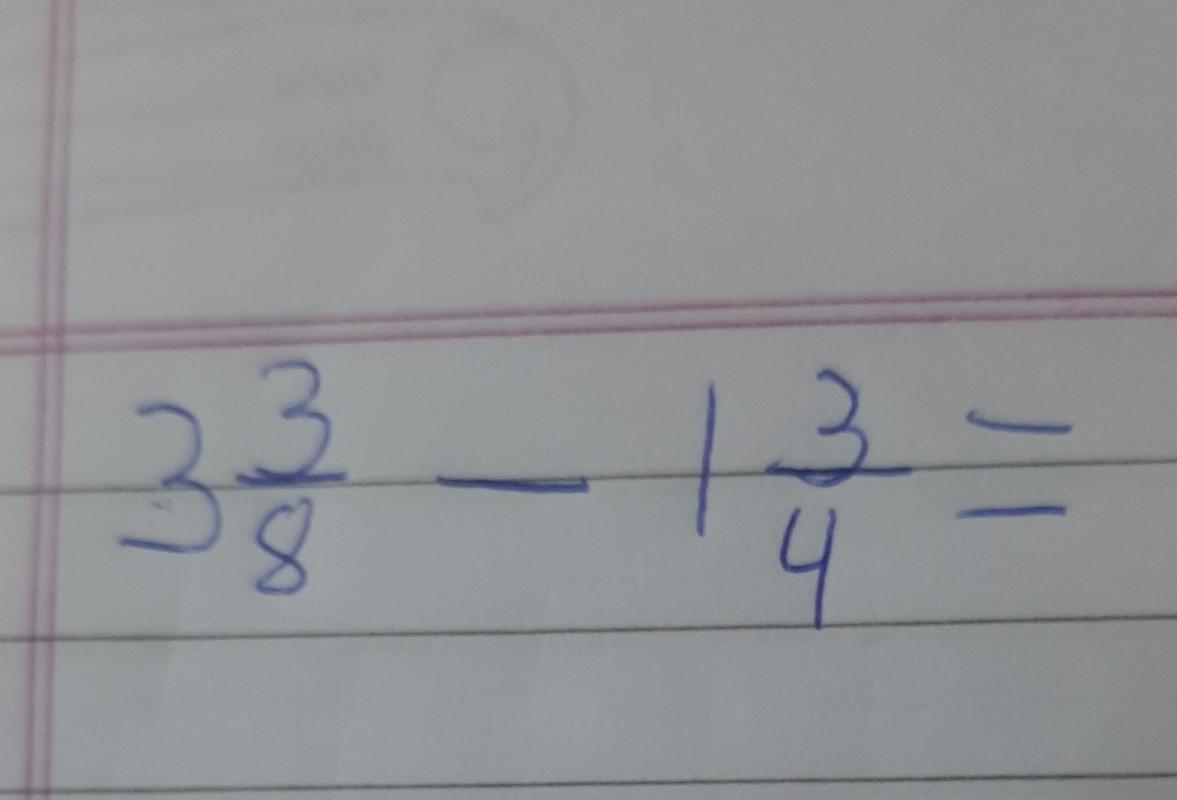 3 3/8 - 1 3/4 =